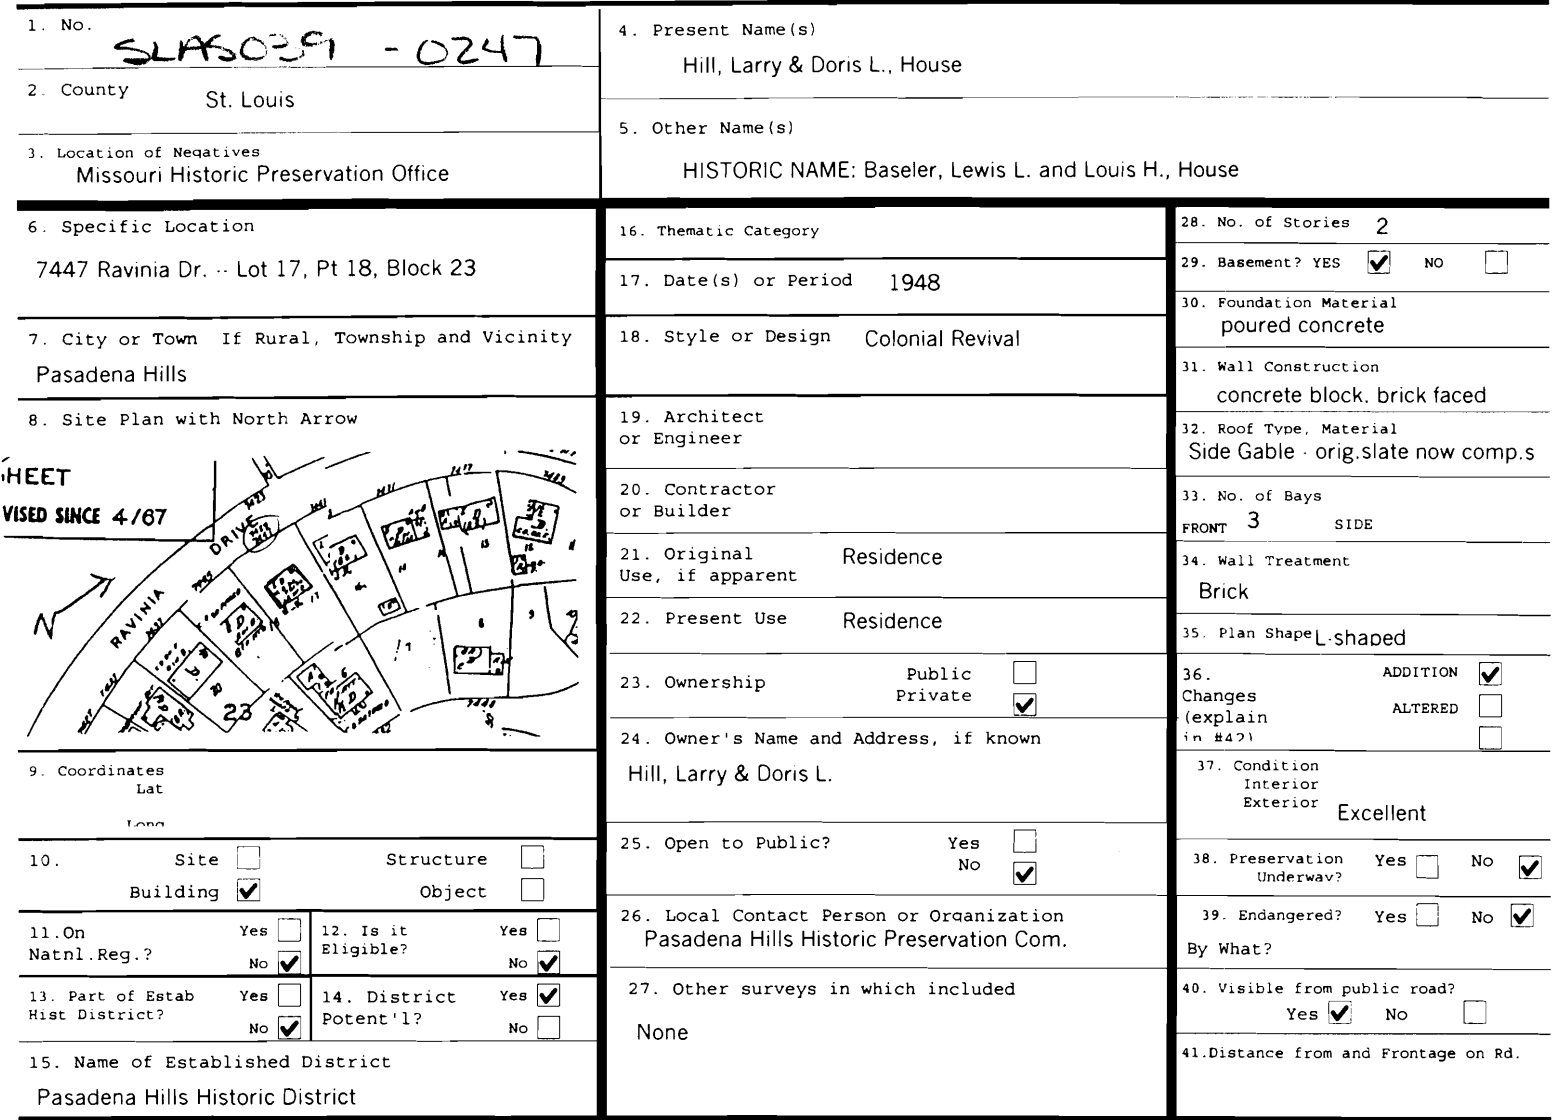 1. No.
SLAS029 - 0247
2. County
St. Louis
3. Location of Negatives
Missouri Historic Preservation Office
4. Present Name(s)
Hill, Larry & Doris L., House
5. Other Name(s)
HISTORIC NAME: Baseler, Lewis L. and Louis H., House
6. Specific Location
7447 Ravinia Dr. -- Lot 17, Pt 18, Block 23
7. City or Town If Rural, Township and Vicinity
Pasadena Hills
8. Site Plan with North Arrow
HEET
VISED SINCE 4/67
RAVINIA DRIVE
N
23
9. Coordinates
Lat
Long
10. Site Structure
Building ✔ Object
11.On Yes
Natnl.Reg.? No ✔
12. Is it Yes
Eligible? No ✔
13. Part of Estab Yes
Hist District? No ✔
14. District Yes ✔
Potent'l? No
15. Name of Established District
Pasadena Hills Historic District
16. Thematic Category
17. Date(s) or Period 1948
18. Style or Design Colonial Revival
19. Architect
or Engineer
20. Contractor
or Builder
21. Original Residence
Use, if apparent
22. Present Use Residence
23. Ownership Public
Private ✔
24. Owner's Name and Address, if known
Hill, Larry & Doris L.
25. Open to Public? Yes
No ✔
26. Local Contact Person or Organization
Pasadena Hills Historic Preservation Com.
27. Other surveys in which included
None
28. No. of Stories 2
29. Basement? YES ✔ NO
30. Foundation Material
poured concrete
31. Wall Construction
concrete block. brick faced
32. Roof Type, Material
Side Gable - orig.slate now comp.s
33. No. of Bays
FRONT 3 SIDE
34. Wall Treatment
Brick
35. Plan Shape L-shaped
36. ADDITION ✔
Changes
(explain ALTERED
in #42)
37. Condition
Interior
Exterior Excellent
38. Preservation Yes No ✔
Underway?
39. Endangered? Yes No ✔
By What?
40. Visible from public road?
Yes ✔ No
41.Distance from and Frontage on Rd.